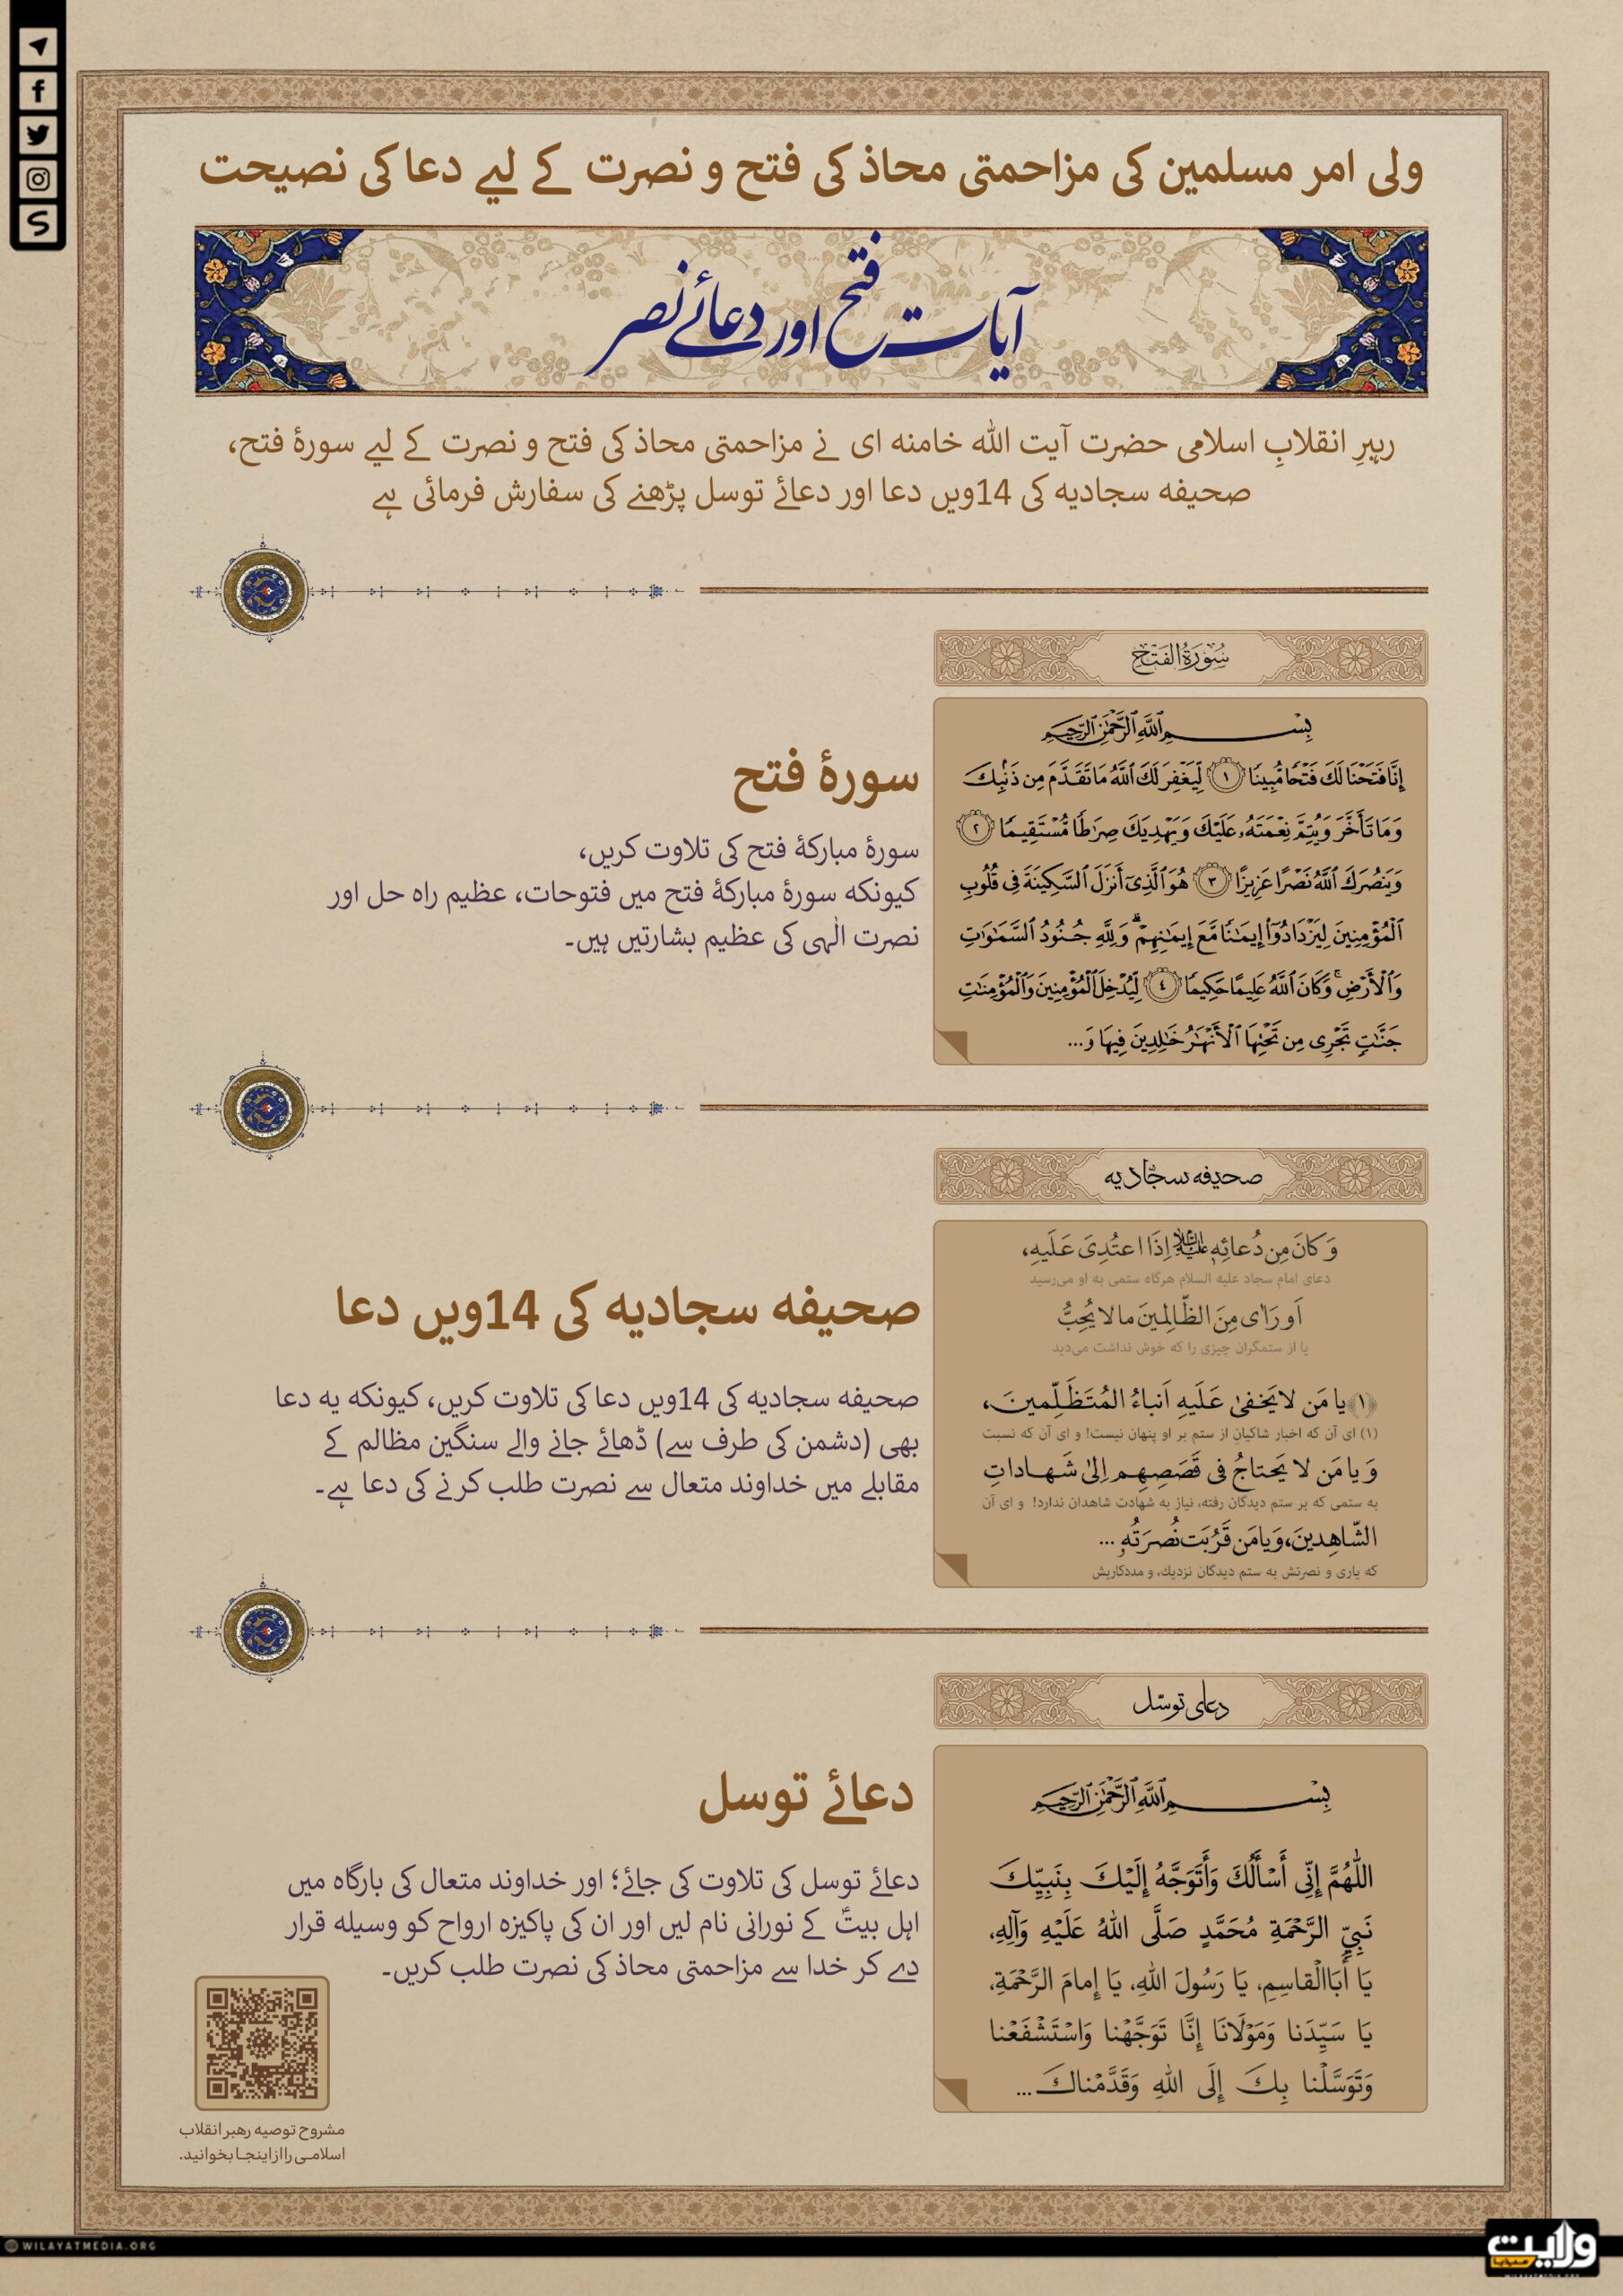 ولی امر مسلمین کی مزاحمتی محاذ کی فتح و نصرت کے لیے دعا کی نصیحت
آیات فتح اور دعائے نصر
رہبرِ انقلابِ اسلامی حضرت آیت اللہ خامنہ ای نے مزاحمتی محاذ کی فتح و نصرت کے لیے سورۂ فتح،
صحیفہ سجادیہ کی 14ویں دعا اور دعائے توسل پڑھنے کی سفارش فرمائی ہے
سُورَةُ الفَتح
بِسْمِ ٱللَّهِ ٱلرَّحْمَٰنِ ٱلرَّحِيمِ
إِنَّا فَتَحْنَا لَكَ فَتْحًا مُّبِينًا ١ لِّيَغْفِرَ لَكَ ٱللَّهُ مَا تَقَدَّمَ مِن ذَنۢبِكَ
وَمَا تَأَخَّرَ وَيُتِمَّ نِعْمَتَهُۥ عَلَيْكَ وَيَهْدِيَكَ صِرَٰطًا مُّسْتَقِيمًا ٢
وَيَنصُرَكَ ٱللَّهُ نَصْرًا عَزِيزًا ٣ هُوَ ٱلَّذِىٓ أَنزَلَ ٱلسَّكِينَةَ فِى قُلُوبِ
ٱلْمُؤْمِنِينَ لِيَزْدَادُوٓا۟ إِيمَٰنًا مَّعَ إِيمَٰنِهِمْ ۗ وَلِلَّهِ جُنُودُ ٱلسَّمَٰوَٰتِ
وَٱلْأَرْضِ ۚ وَكَانَ ٱللَّهُ عَلِيمًا حَكِيمًا ٤ لِّيُدْخِلَ ٱلْمُؤْمِنِينَ وَٱلْمُؤْمِنَٰتِ
جَنَّٰتٍ تَجْرِى مِن تَحْتِهَا ٱلْأَنْهَٰرُ خَٰلِدِينَ فِيهَا وَ...
سورۂ فتح
سورۂ مبارکۂ فتح کی تلاوت کریں،
کیونکہ سورۂ مبارکۂ فتح میں فتوحات، عظیم راہ حل اور
نصرت الٰہی کی عظیم بشارتیں ہیں۔
صحیفه سجّادیه
وَ كانَ مِن دُعائِهِ عَلَيْهِ السَّلَام إِذَا اعتُدِىَ عَلَيهِ،
دعای امام سجاد علیه السلام هرگاه ستمی به او می‌رسید
اَو رَاٰى مِنَ الظّالِمينَ ما لا يُحِبُّ
یا از ستمگران چیزی را که خوش نداشت می‌دید
﴿١﴾ يا مَن لا يَخفىٰ عَلَيهِ اَنباءُ المُتَظَلِّمينَ،
(۱) ای آن که اخبار شاکیان از ستم بر او پنهان نیست! و ای آن که نسبت
وَ يا مَن لا يَحتاجُ فى قَصَصِهِم اِلىٰ شَهاداتِ
به ستمی که بر ستم دیدگان رفته، نیاز به شهادت شاهدان ندارد! و ای آن
الشّاهِدينَ، وَ يا مَن قَرُبَت نُصرَتُهُ ...
که یاری و نصرتش به ستم دیدگان نزدیک، و مددکاریش
صحیفہ سجادیہ کی 14ویں دعا
صحیفہ سجادیہ کی 14ویں دعا کی تلاوت کریں، کیونکہ یہ دعا
بھی (دشمن کی طرف سے) ڈھائے جانے والے سنگین مظالم کے
مقابلے میں خداوند متعال سے نصرت طلب کرنے کی دعا ہے۔
دعای توسّل
بِسْمِ ٱللَّهِ ٱلرَّحْمَٰنِ ٱلرَّحِيمِ
اللّٰهُمَّ إِنِّى أَسْأَلُكَ وَأَتَوَجَّهُ إِلَيْكَ بِنَبِيِّكَ
نَبِيِّ الرَّحْمَةِ مُحَمَّدٍ صَلَّى اللهُ عَلَيْهِ وَآلِهِ،
يَا أَبَاالْقاسِمِ، يَا رَسُولَ اللهِ، يَا إِمامَ الرَّحْمَةِ،
يَا سَيِّدَنا وَمَوْلَانَا إِنَّا تَوَجَّهْنا وَاسْتَشْفَعْنا
وَتَوَسَّلْنا بِكَ إِلَى اللهِ وَقَدَّمْناكَ ...
دعائے توسل
دعائے توسل کی تلاوت کی جائے؛ اور خداوند متعال کی بارگاہ میں
اہل بیتؑ کے نورانی نام لیں اور ان کی پاکیزہ ارواح کو وسیلہ قرار
دے کر خدا سے مزاحمتی محاذ کی نصرت طلب کریں۔
مشروح توصیه رهبر انقلاب
اسلامی را از اینجا بخوانید.
WILAYATMEDIA.ORG
ولایت
میڈیا